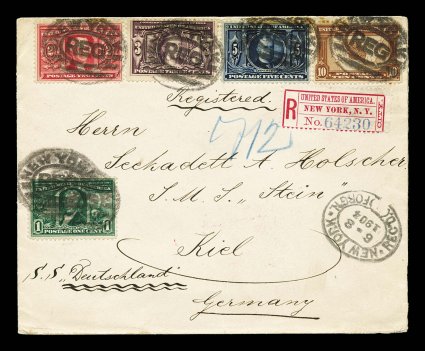 2 2
3 3
5 5
10
POSTAGE TWO CENTS
POSTAGE THREE CENTS
POSTAGE FIVE CENTS
REG
REG
REG
Registered.
R
UNITED STATES OF AMERICA.
NEW YORK, N. Y.
No. 64230
712
Herrn
Seekadett A. Holscher
S. M. S. „Stein"
NEW YORK
1 1
POSTAGE ONE CENT
NEW YORK
REG'Y
6-8
1904
Kiel
S.S. „Deutschland"
Germany